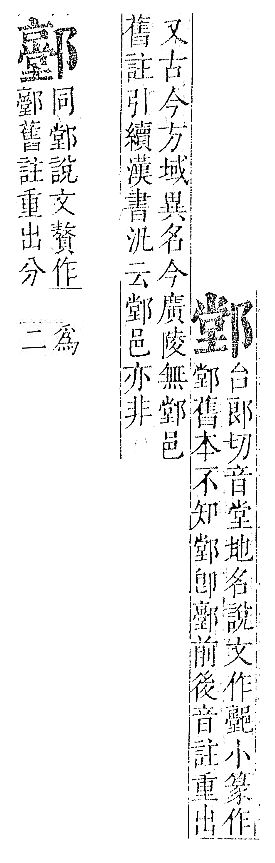 台郎切音堂地名說文作小篆作
舊本不知即前後音註重出
又古今方域異名今廣陵無邑
舊註引續漢書汎云邑亦非
同說文贅作 為
舊註重出分 二